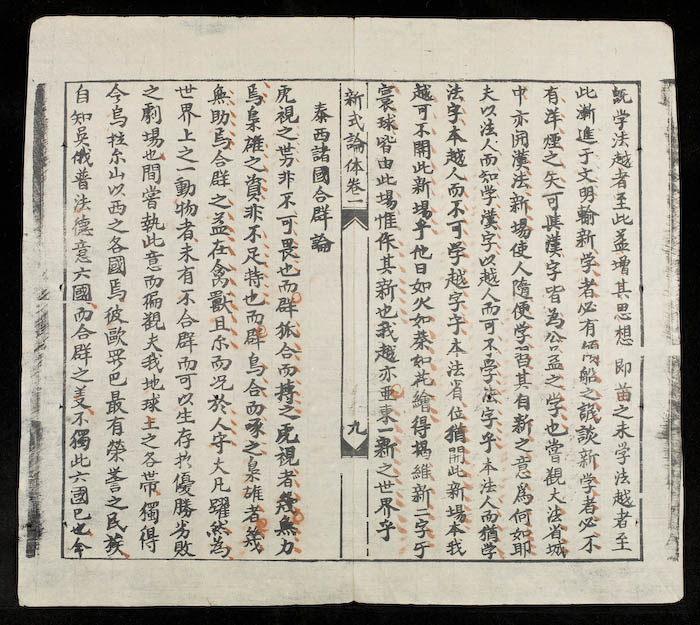 既学法越者至此益增其思想即苗之未学法越者至
此漸進于文明輸新学者必有船之議談新学者必不
有洋煙之失可與漢字皆為公益之学也嘗觀大法省城
中亦開漢法新場使人隨便学習其自新之意為何如耶
夫以法人而知学漢字以越人而可不学法字乎本法人而猶学
法字本越人而不可学越字字本法省位猶開此新場本我
越可不開此新場乎他日如火如荼如花繪得揭維新二字于
寰球皆由此場惟作其新也我越亦亜東一新之世界乎
新式論体卷一
九
泰西諸國合群論
虎視之势非不可畏也而群狐合而持之虎視者幾無力
焉梟雄之資非不足恃也而群鳥合而啄之梟雄者幾
無助焉合群之益在禽獸且尔而况於人乎大凡躍然為
世界上之一動物者未有不合群而可以生存扵優勝劣敗
之劇場也間嘗執此意而徧觀夫我地球上之各帶獨得
今烏拉尔山以西之各國焉彼歐罗巴最有榮誉之民族
自知英俄普法德意六國而合群之美不獨此六國已也今